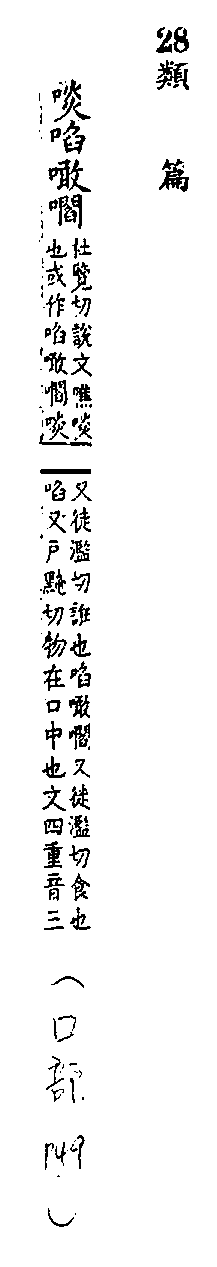 28 類篇
啖啗噉嚪
杜覽切說文噍啖
也或作啗噉嚪啖
又徒濫切誑也啗噉嚪又徒濫切食也
啗又戶黤切物在口中也文四重音三
（口部 P49）